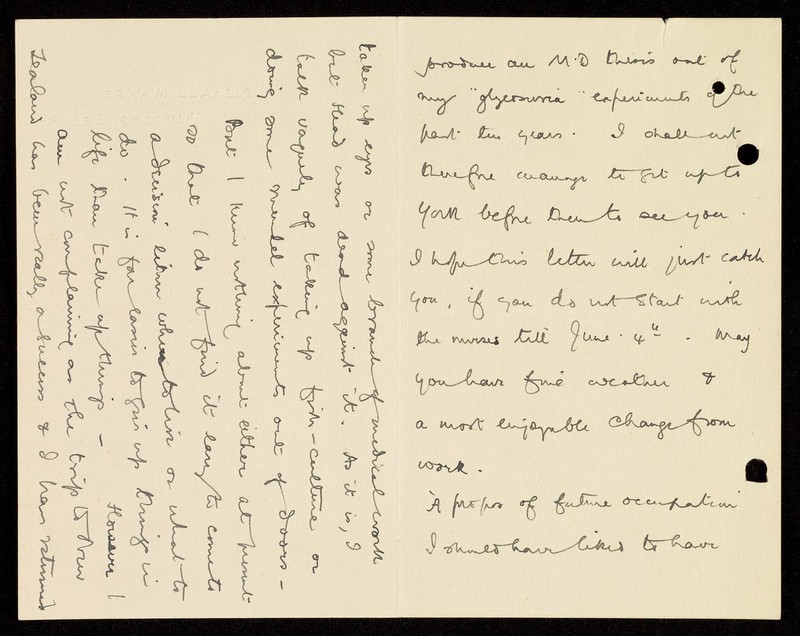 produce an M.D thesis out of
my "glycosuria" experiments of the
past ten years. I shall not
therefore manage to get up to
York before then to see you.
I hope this letter will just catch
you, if you do not start with
the nurses till June 4th. May
you have fine weather &
a most enjoyable change from
work.
À propos of future occupation
I should have liked to have
taken up eyes or some branch of medical work
but Head was dead against it. As it is, I
talk vaguely of taking up fish-culture or
doing some Mendel experiments out of doors -
But I know nothing about either at present
so that I do not find it easy to come to
a decision either where to live or what to
do. It is far easier to give up things in
life than take up things - However I
am not complaining as the trip to New
Zealand has been really a success & I have returned